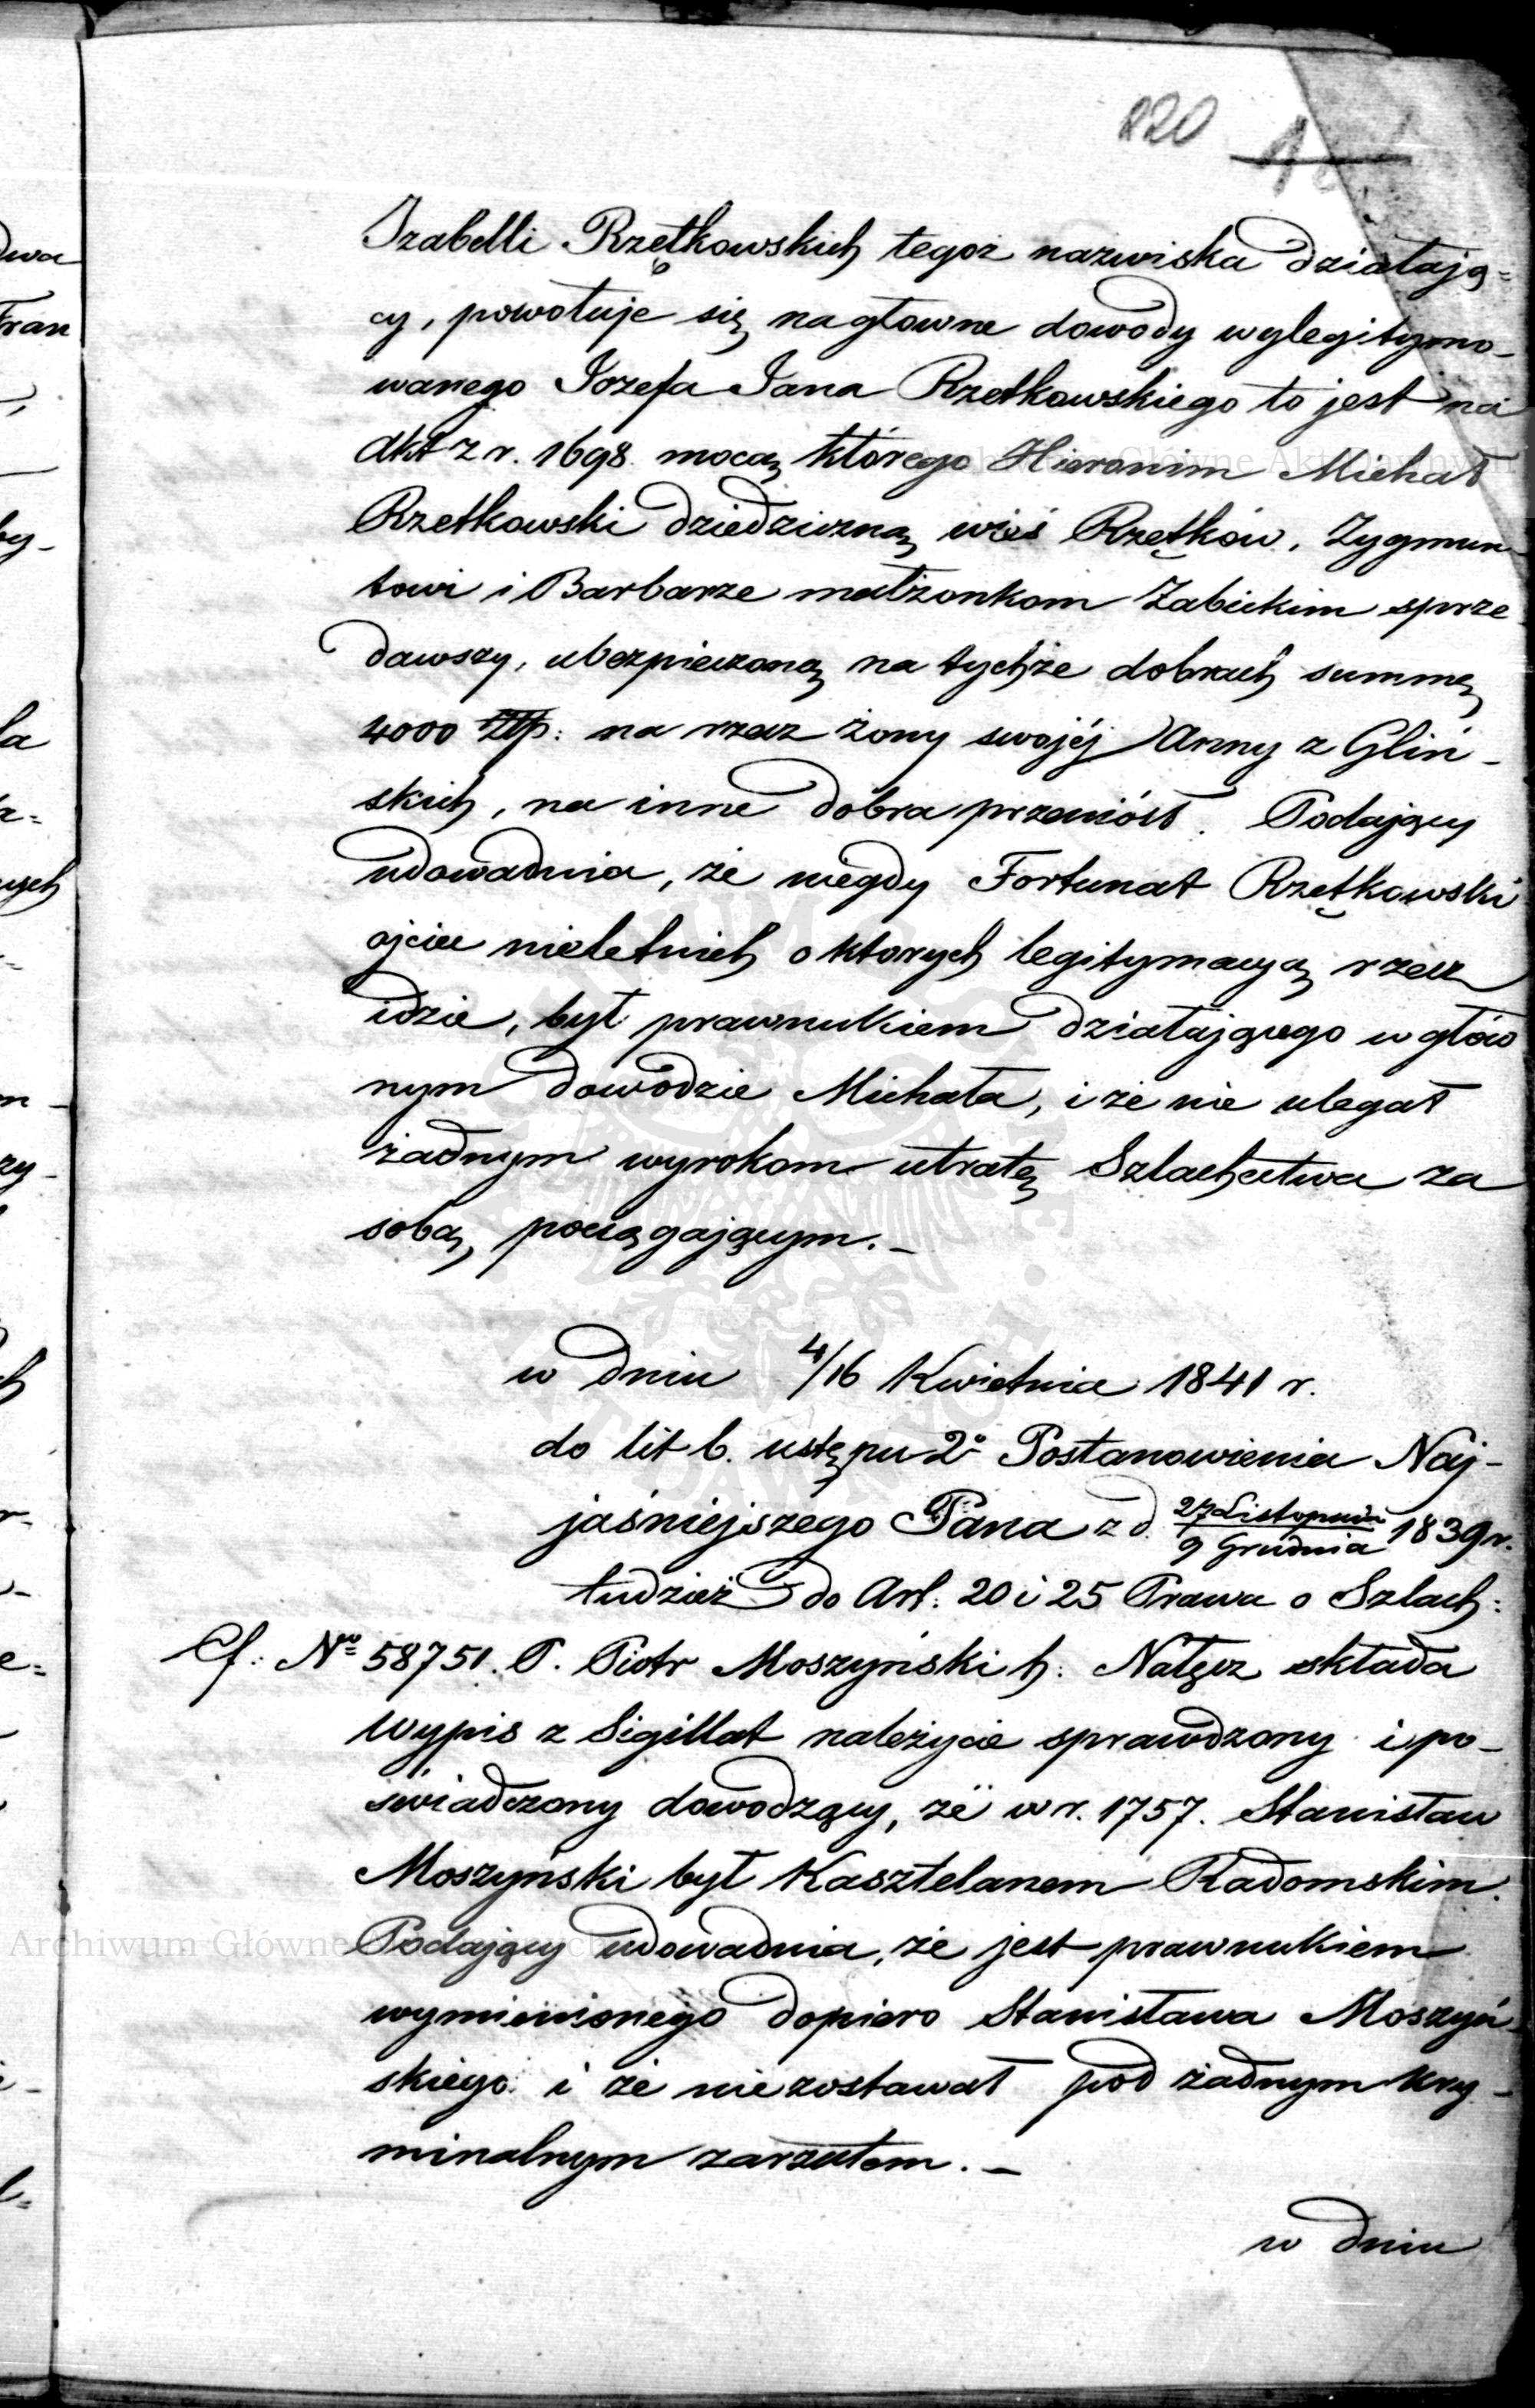 820
Izabelli Rzętkowskich tegoż nazwiska działają=
cy, powołuje się na głowne dowody wylegitymo-
wanego Jozefa Jana Rzetkowskiego to jest na
akt z r. 1698 mocą którego Hieronim Michał
Rzetkowski dziedziczną wieś Rzętków, Zygmun-
towi i Barbarze małżonkom Zabickim sprze
dawszy, ubezpieczoną na tychże dobrach summę
4000 Złp: na rzecz żony swojéj Anny z Gliń-
skich, na inne dobra przeniósł. Podający
udowadnia, że niegdy Fortunat Rzętkowski
ojciec nieletnich o ktorych legitymacyą rzecz
idzie, był prawnukiem działającego w głów
nym dowodzie Michała, i że nie ulegał
żadnym wyrokom utratę Szlachectwa za
sobą pociągającym.-
w dniu 4/16 Kwietnia 1841 r.
do lit b. ustępu 2º Postanowienia Naj-
jaśniejszego Pana z d. 27 Listopada / 9 Grudnia 1839 r.
tudzież do Art: 20 i 25 Prawa o Szlach:
Cf: Nº 58751. P. Piotr Moszyński h: Nałęcz składa
wypis z Sigillat należycie sprawdzony i po-
świadczony dowodzący, że w r. 1757. Stanisław
Moszyński był Kasztelanem Radomskim.
Podający udowadnia, że jest prawnukiem
wymienionego dopiero Stanisława Moszyń-
skiego i że nie zostawał pod żadnym kry-
minalnym zarzutem.-
w dniu